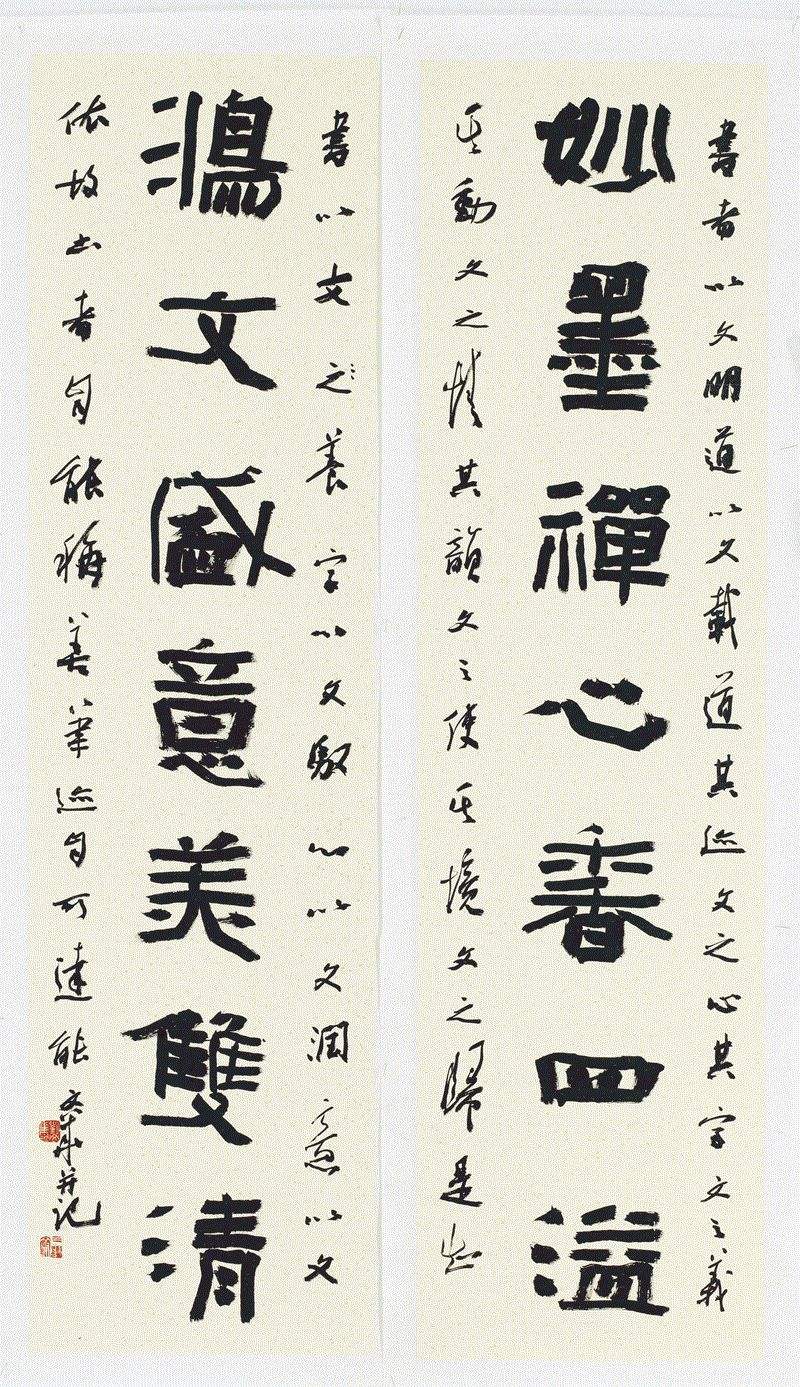 書者以文明道以文載道其迹文之心其字文之義
妙墨禪心香四溢
其動文之情其韻文之使其境文之歸是知
書以文之養字以文馭心以文潤意以文
鴻文盛意美雙清
依故者自能稱善筆迹自可達能并記